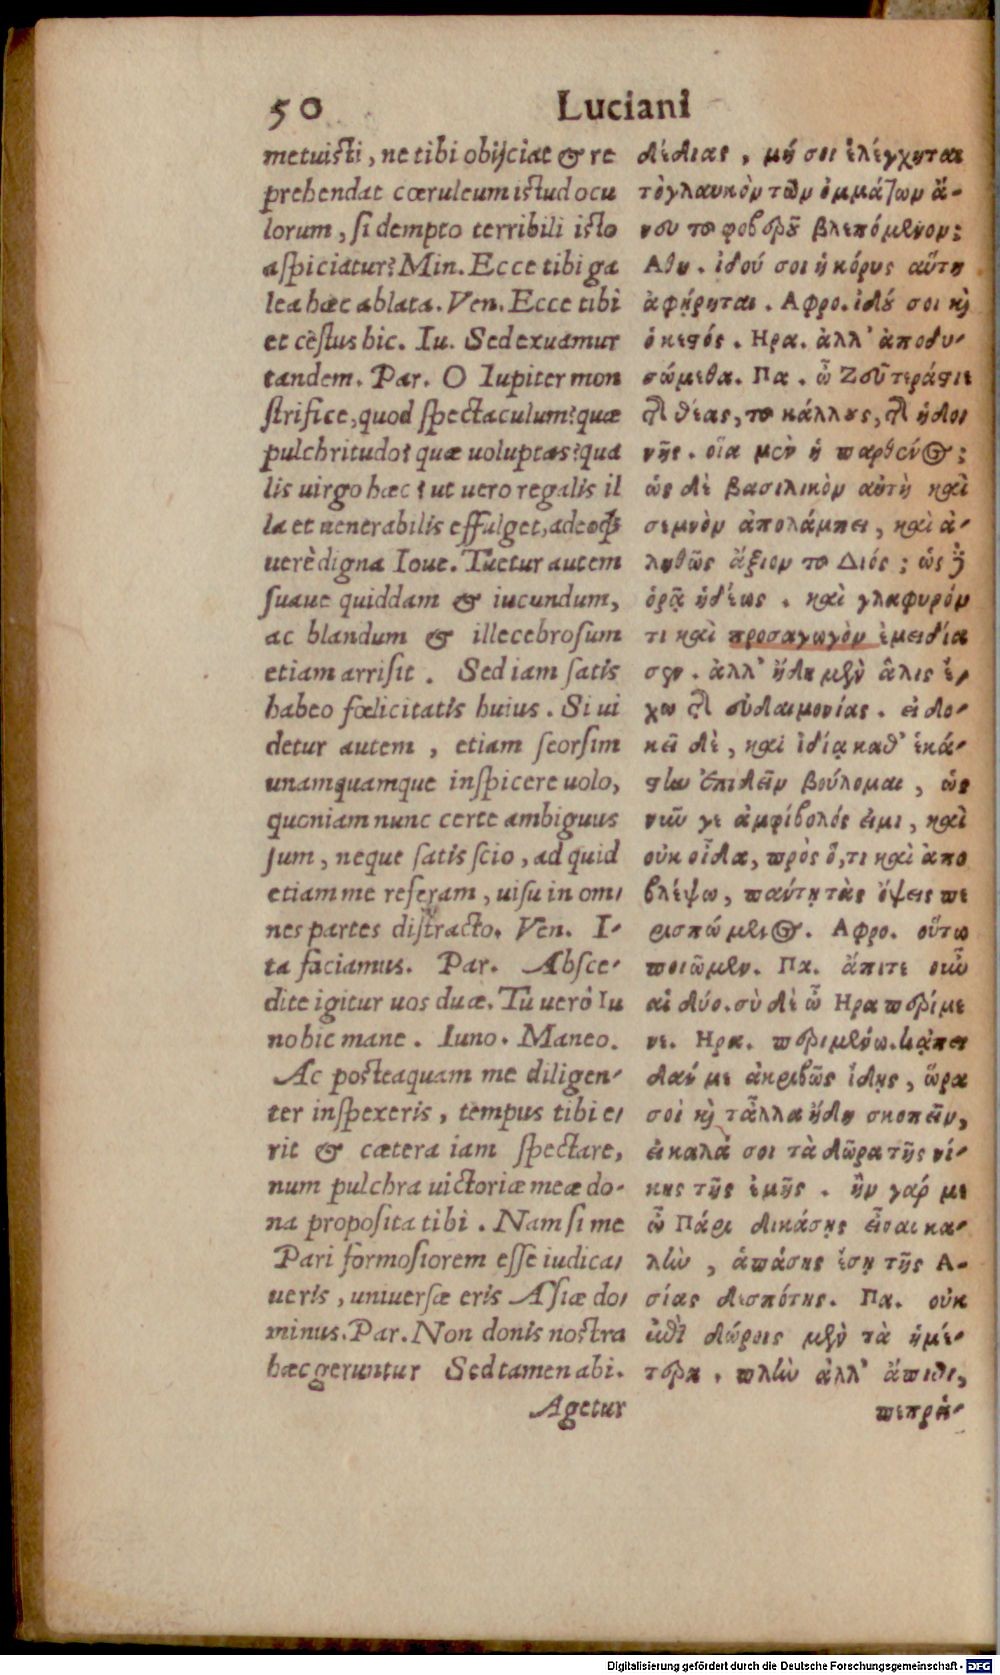 50 Luciani
metuisti, ne tibi obijciat & re
prehendat cœruleum istud ocu
lorum, si dempto terribili isto
aspiciatur? Min. Ecce tibi ga
lea hæc ablata. Ven. Ecce tibi
et cestus hic. Iu. Sed exuamur
tandem. Par. O Iupiter mon
strifice, quod spectaculum? quæ
pulchritudo? quæ uoluptas? qua
lis uirgo hæc? ut uero regalis il
la et uenerabilis effulget, adeoq́;
uerè digna Ioue. Tuetur autem
suaue quiddam & iucundum,
ac blandum & illecebrosum
etiam arrisit. Sed iam satis
habeo fœlicitatis huius. Si ui
detur autem, etiam seorsim
unamquamque inspicere uolo,
quoniam nunc certe ambiguus
sum, neque satis scio, ad quid
etiam me referam, uisu in om-
nes partes distracto. Ven. I-
ta faciamus. Par. Absce-
dite igitur uos duæ. Tu uerò Iu
no hic mane. Iuno. Maneo.
Ac posteaquam me diligen-
ter inspexeris, tempus tibi e-
rit & cætera iam spectare,
num pulchra uictoriæ meæ do-
na proposita tibi. Nam si me
Pari formosiorem esse iudica-
ueris, uniuersæ eris Asiæ do-
minus. Par. Non donis nostra
hæc geruntur Sed tamen abi.
Agetur
δέδιας, μή σοι ἐλέγχηται
τὸ γλαυκὸν τῶν ὀμμάτων ἄ-
νευ τοῦ φοβεροῦ βλεπόμενον;
Αθη. ἰδού σοι ἡ κόρυς αὕτη
ἀφῄρηται. Αφρο. ἰδού σοι καὶ
ὁ κεστός. Ηρα. ἀλλ' ἀποδυ-
σώμεθα. Πα. ὦ Ζεῦ τεράστιε
τῆς θέας, τοῦ κάλλους, τῆς ἡδο
νῆς. οἵα μὲν ἡ παρθένος;
ὡς δὲ βασιλικὸν αὐτὴ καὶ
σεμνὸν ἀπολάμπει, καὶ ἀ-
ληθῶς ἄξιον τοῦ Διός; ὡς δὲ
ὁρᾷ ἡδέως. καὶ γλαφυρόν
τι καὶ προσαγωγὸν ἐμειδία
σεν. ἀλλ' ἤδη μὲν ἅλις ἔ-
χω τῆς εὐδαιμονίας. εἰ δο-
κεῖ δὲ, καὶ ἰδίᾳ καθ' ἑκά-
στην ἐπιδεῖν βούλομαι, ὡς
νῦν γε ἀμφίβολός εἰμι, καὶ
οὐκ οἶδα, πρὸς ὅ,τι καὶ ἀπο
βλέψω, παύτῃ τὰς ὄψεις πε
ρισπώμενος. Αφρο. οὕτω
ποιῶμεν. Πα. ἄπιτε οὖν
αἱ δύο. σὺ δὲ ὦ Ηρα περίμε
νε. Ηρα. περιμένω. κἀπει
δάν με ἀκριβῶς ἴδῃς, ὥρα
σοὶ καὶ τἆλλα ἤδη σκοπεῖν,
εἰ καλά σοι τὰ δῶρα τῆς νί-
κης τῆς ἐμῆς. ἢν γάρ με
ὦ Πάρι δικάσῃς εἶναι κα-
λὴν, ἁπάσης ἔσῃ τῆς Α-
σίας δεσπότης. Πα. οὐκ
ἐπὶ δώροις μὲν τὰ ἡμέ-
τερα. πλὴν ἀλλ' ἄπιθι,
πεπρά-
Digitalisierung gefördert durch die Deutsche Forschungsgemeinschaft - DFG